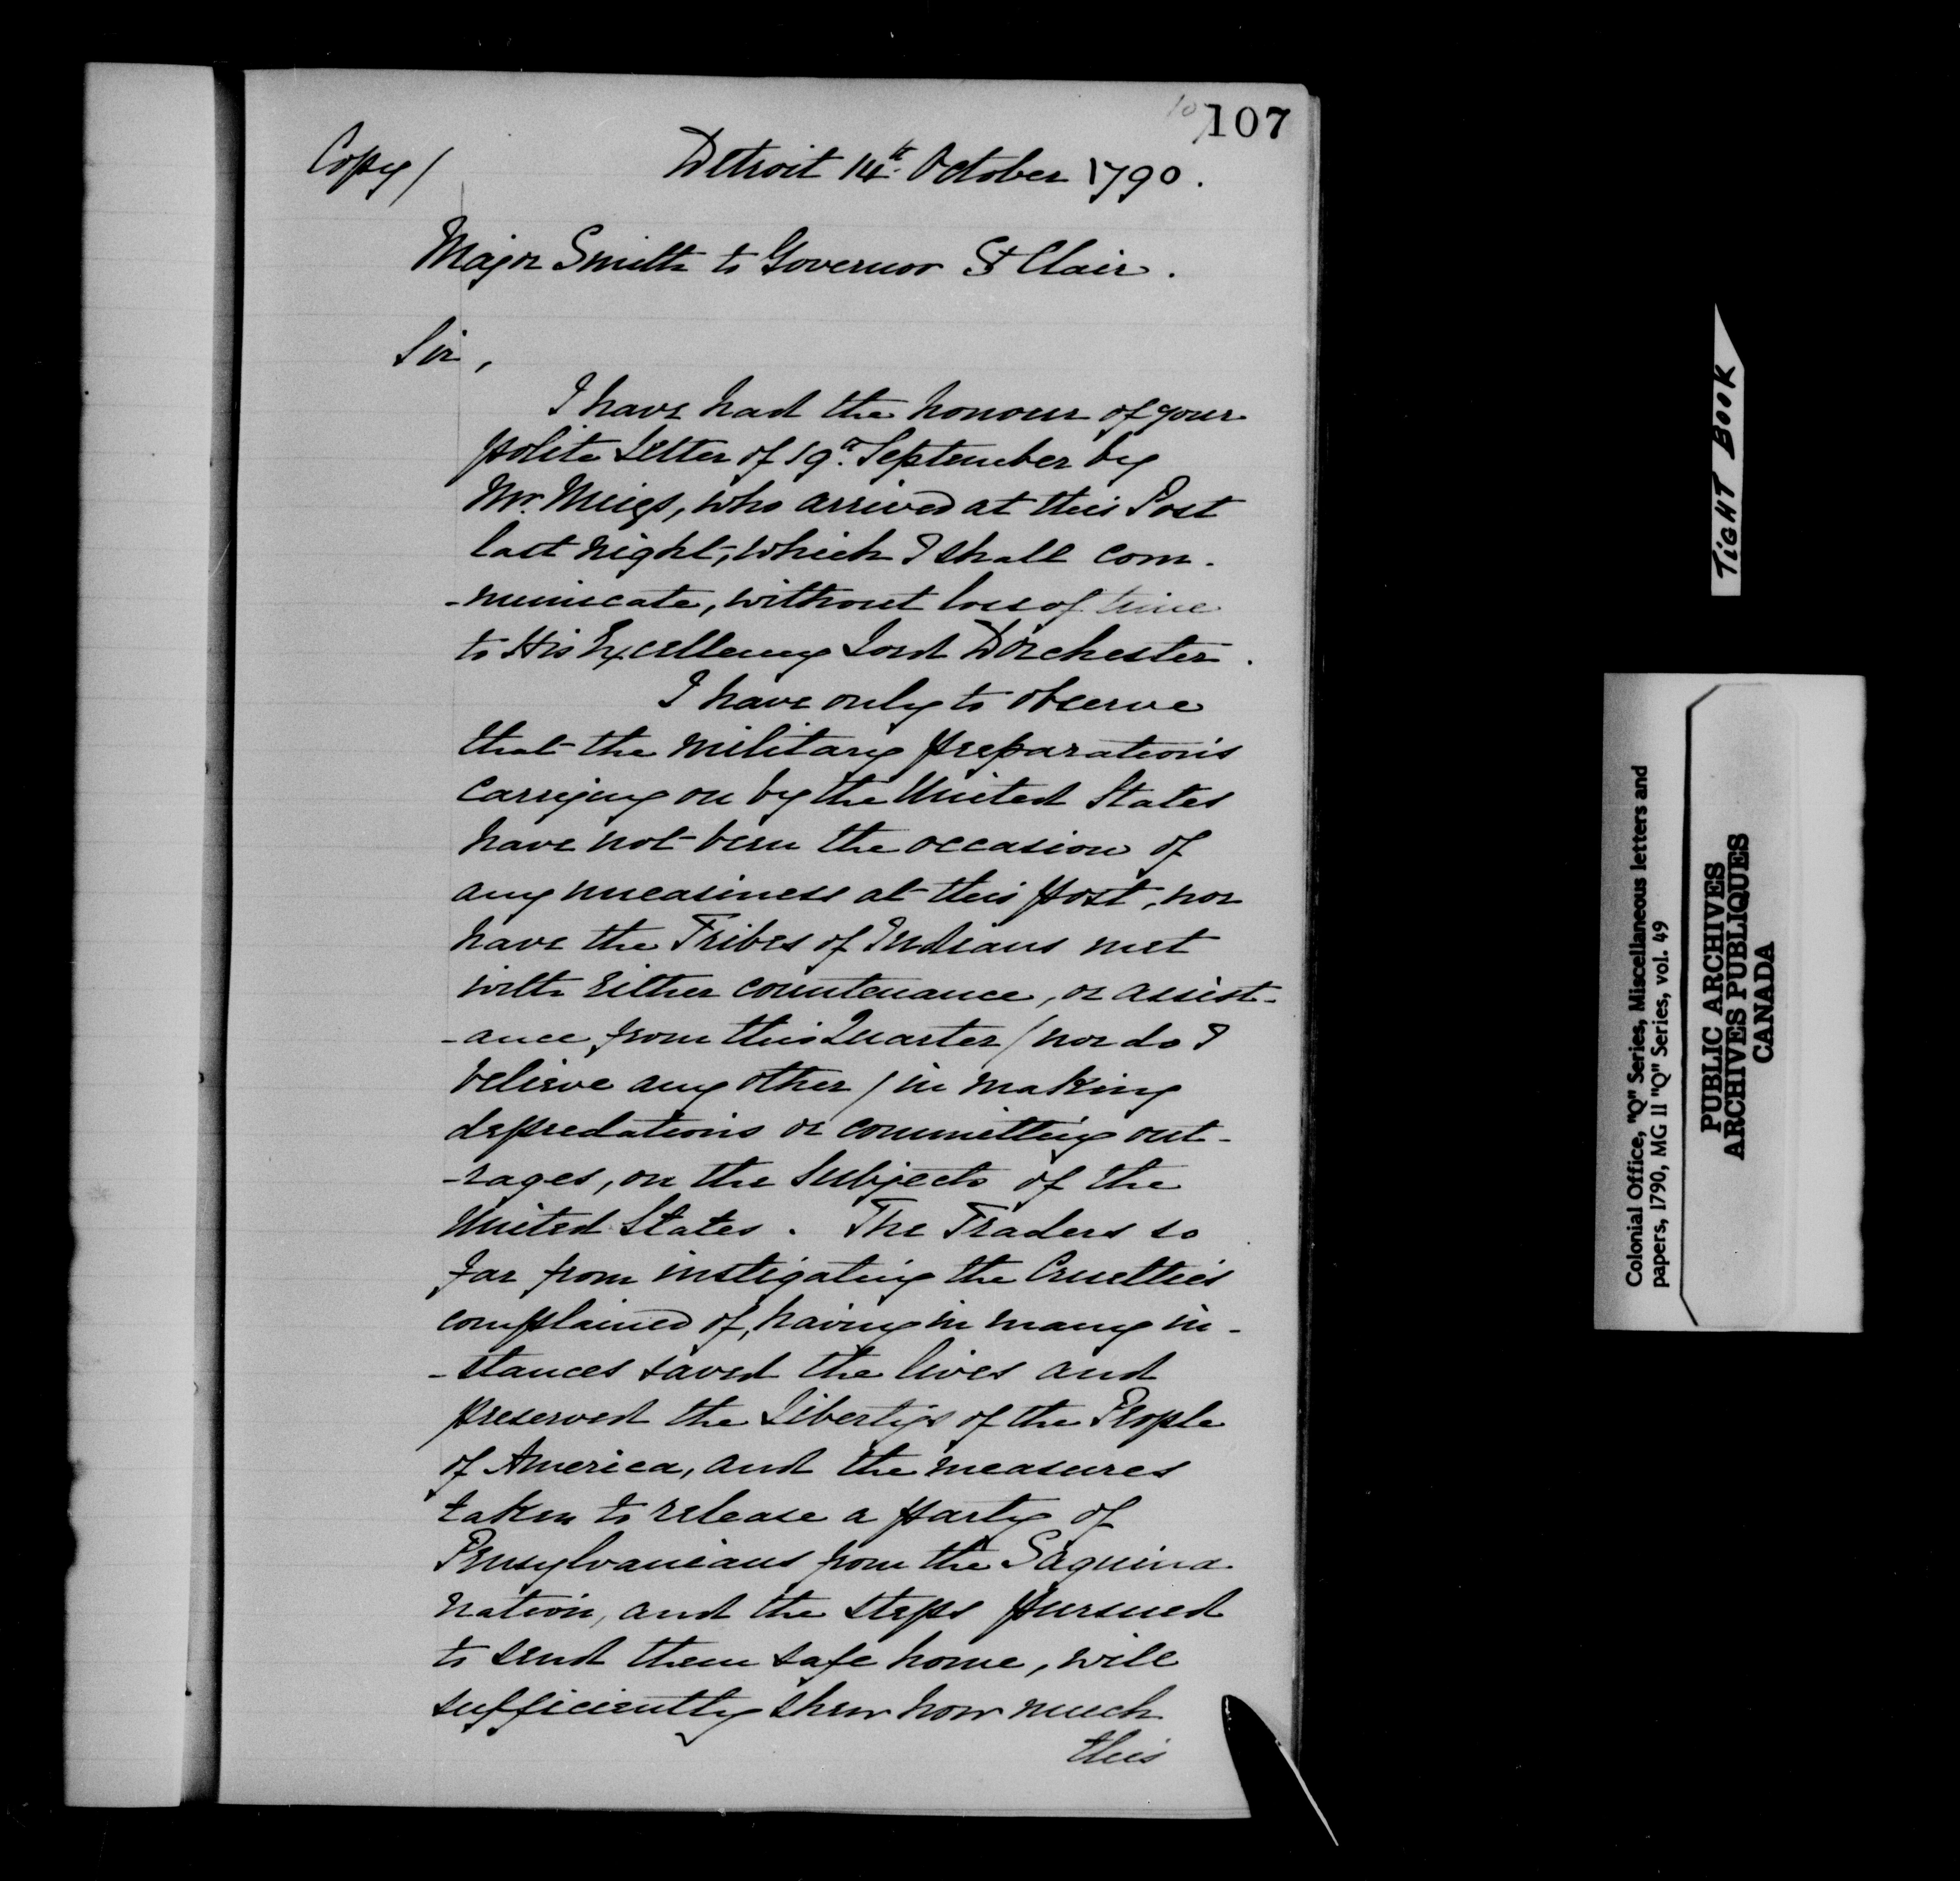 107
107
Copy/
Detroit 14th October 1790.
Major Smith to Governor St Clair.
Sir,
I have had the honour of your
polite Letter of 19th September by
Mr. Meigs, who arrived at this Post
last night, which I shall com-
-municate, without loss of time
to His Excellency Lord Dorchester.
I have only to observe
that the military preparations
carrying on by the United States
have not been the occasion of
any uneasiness at this post, nor
have the Tribes of Indians met
with either countenance, or assist-
-ance from this Quarter (nor do I
believe any other) in making
depredations or committing out-
-rages, on the Subjects of the
United States. The Traders so
far from instigating the Cruelties
complained of, having in many in-
-stances saved the lives and
preserved the Liberties of the People
of America, and the measures
taken to release a party of
Pensylvanians from the Saguina
nation, and the steps pursued
to send them safe home, will
sufficiently shew how much
this
TIGHT BOOK
Colonial Office, "Q" Series, Miscellaneous letters and
papers, 1790, MG 11 "Q" Series, vol. 49
PUBLIC ARCHIVES
ARCHIVES PUBLIQUES
CANADA